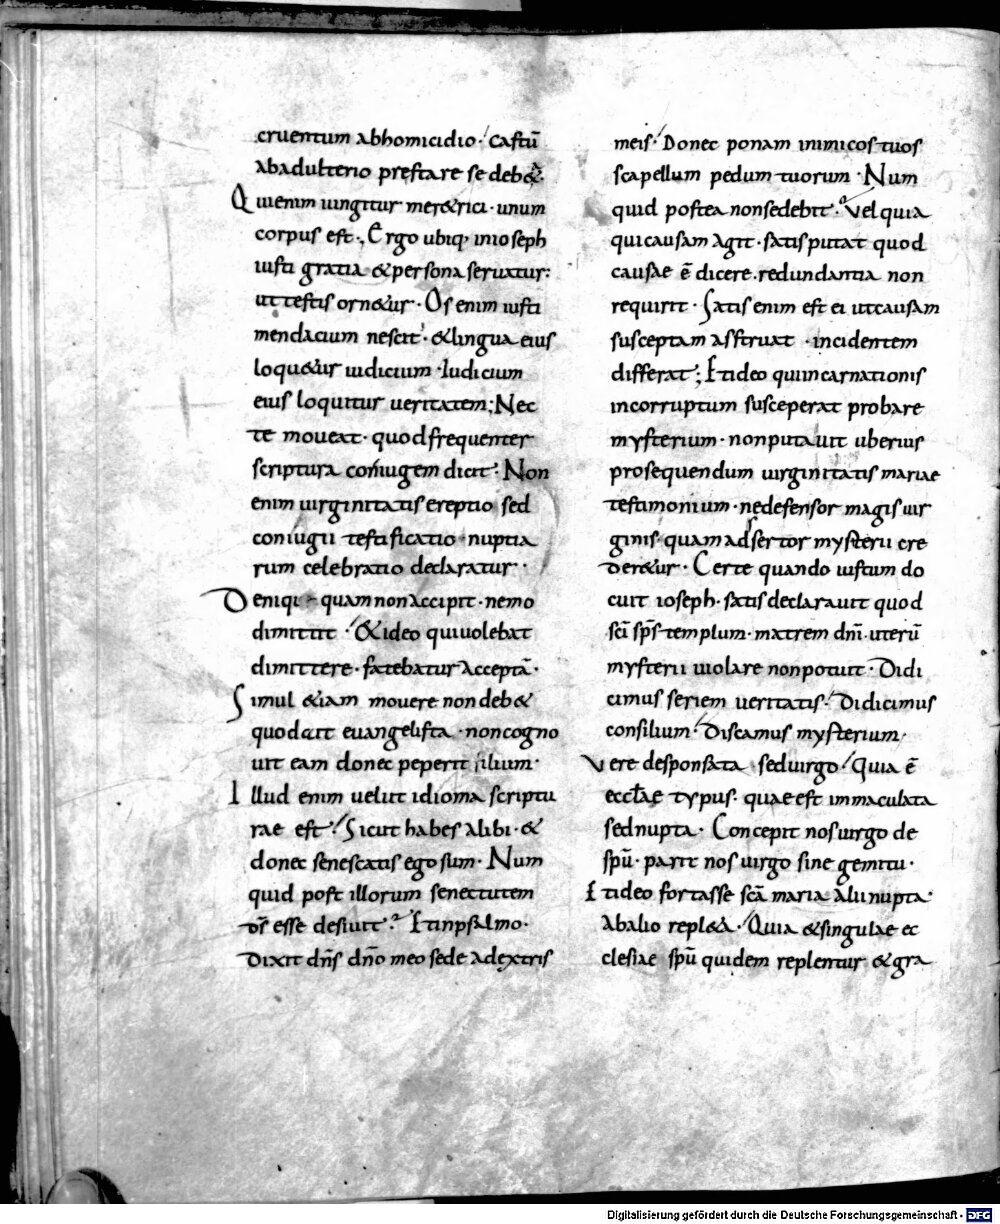 cruentum abhomicidio· Castū
abadulterio prestare se deb&·
Quienim iungitur mer&rici· unum
corpus est·, Ergo ubiq, inioseph
iusti gratia &persona seruatur:
ut testis orn&ur· Os enim iusti
mendacium nescit· &lingua eius
loqu&ur iudicium· Iudicium
eius loquitur ueritatem; Nec
te moueat· quodfrequenter
scriptura coniugem dicit· Non
enim uirginitatis ereptio sed
coniugii testificatio· nuptia
rum celebratio declaratur·
Deniq· quamnonaccipit· nemo
dimittit· &ideo quiuolebat
dimittere· fatebatur acceptā·
Simul &iam mouere nondeb&
quodait euangelista· noncogno
uit eam donec peperit filium·
Illud enim uelut idioma scriptu
rae est· Sicut habes alibi· &
donec senescatis ego sum· Num
quid post illorum senectutem
dſ̄ esse desiuit· Etinpsalmo·
Dixit dn̄s dn̄o meo sede adextris
meis· Donec ponam inimicostuos
scapellum pedum tuorum· Num
quid postea nonsedebit· Vel quia
quicausam agit· satisputat quod
causae ē dicere· redundantia non
requirit· Satis enim est ei utcausam
susceptam asstruat· incidentem
differat; Etideo quiincarnationis
incorruptum susceperat probare
mysterium· nonputauit uberius
prosequendum uirginitatis mariae
testimonium· nedefensor magis uir
ginis· quamadsertor mysterii cre
der&ur· Certe quando iustum do
cuit ioseph· satis declarauit quod
sc̄i sp̄s templum· matrem dn̄i· uterū
mysterii uiolare nonpotuit· Didi
cimus seriem ueritatis· Didicimus
consilium· Discamus mysterium·
Vere desponsata seduirgo· Quia ē
eccl̄ae typus· quae est immaculata
sednupta· Concepit nosuirgo de
sp̄u· parit nos uirgo sine gemitu·
Etideo fortasse sc̄a maria alii nupta·
Abalio repl&a· Quia &singulae ec
clesiae sp̄u quidem replentur &gra
Digitalisierung gefördert durch die Deutsche Forschungsgemeinschaft - DFG